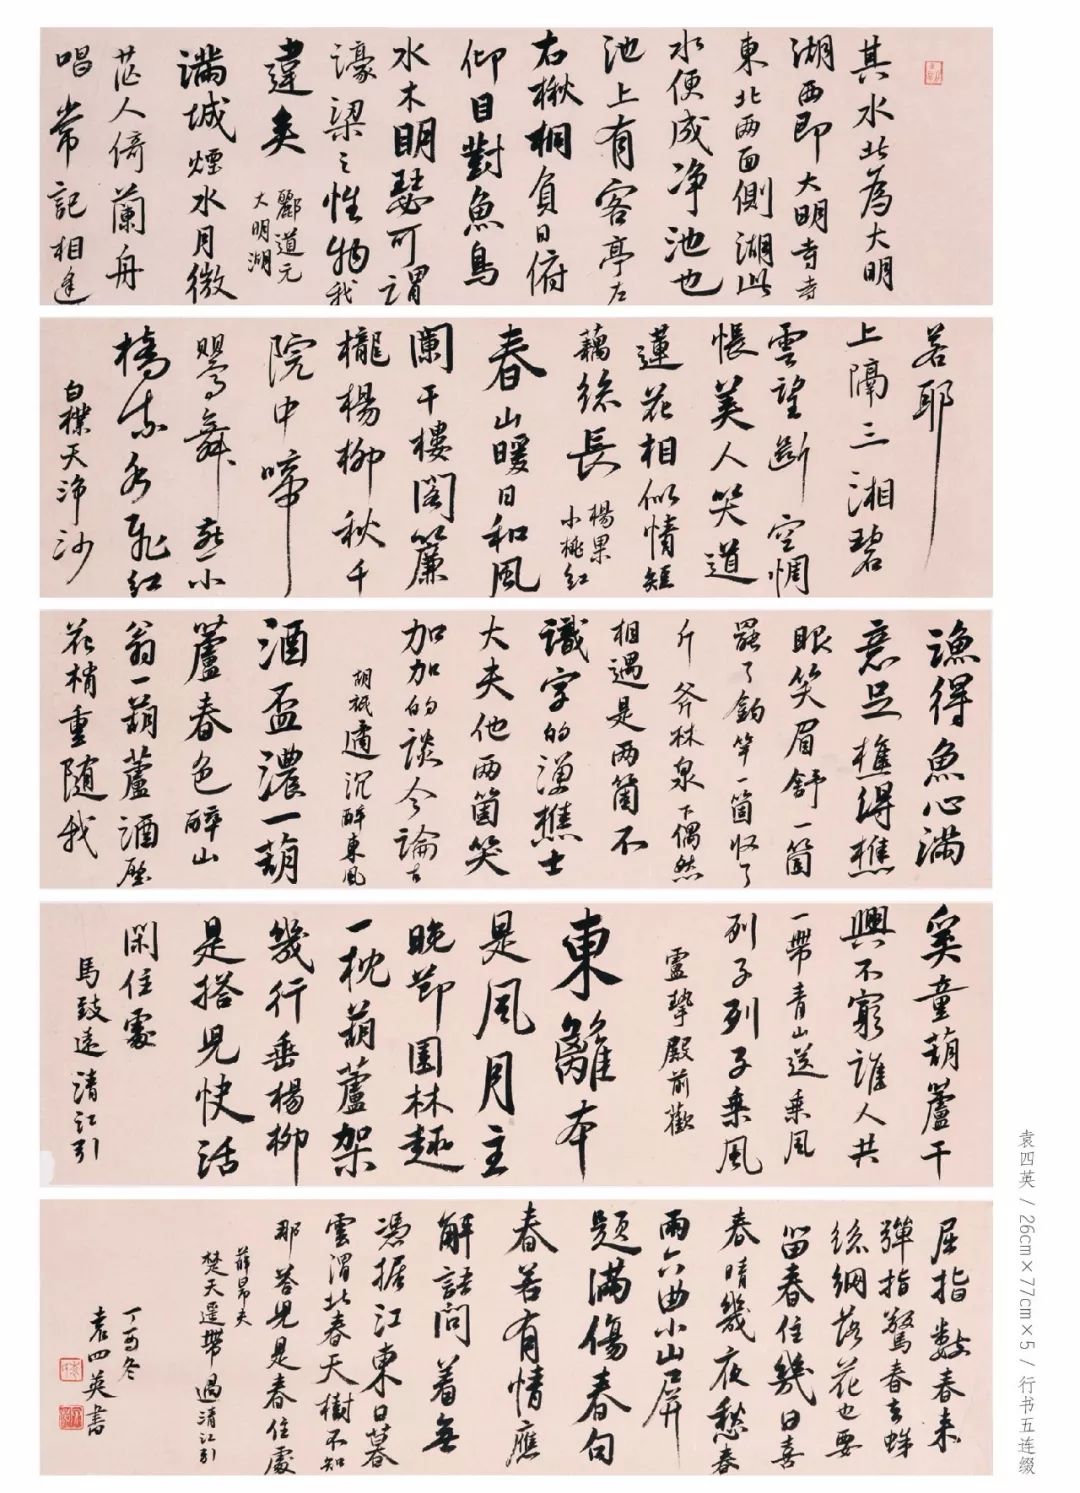 其水北為大明
湖西即大明寺寺
東北兩面側湖此
水便成净池也
池上有客亭左
右楸桐負日俯
仰目對魚鳥
水木明瑟可謂
濠梁之性物我
違矣
酈道元
大明湖
滿城煙水月微
茫人倚蘭舟
唱常記相逢
若耶
上隔三湘碧
雲望斷空惆
悵美人笑道
蓮花相似情短
藕絲長
楊果
小桃紅
春山暖日和風
闌干樓閣簾
櫳楊柳秋千
院中啼
鶯舞燕小
橋流水飛紅
白樸天淨沙
漁得魚心滿
意足樵得樵
眼笑眉舒一箇
罷了釣竿一箇收了
斤斧林泉下偶然
相遇是兩箇不
識字的漁樵士
大夫他兩箇笑
加加的談今論古
胡祗遹沉醉東風
酒盃濃一葫
蘆春色醉山
翁一葫蘆酒壓
花梢重随我
奚童葫蘆干
興不窮誰人共
一帶青山送乘風
列子列子乘風
盧摯殿前歡
東籬本
是風月主
晚節園林趣
一枕葫蘆架
幾行垂楊柳
是搭兒快活
閑住處
馬致遠清江引
屈指數春来
彈指驚春去蛛
絲網落花也要
留春住幾日喜
春晴幾夜愁春
雨六曲小山屏
題滿傷春句
春若有情應
解語問着無
憑據江東日暮
雲渭北春天樹不知
那答兒是春住處
薛昂夫
楚天遥帶過清江引
丁酉冬
袁四英書
袁四英 / 26cm×77cm×5 / 行书五连缀